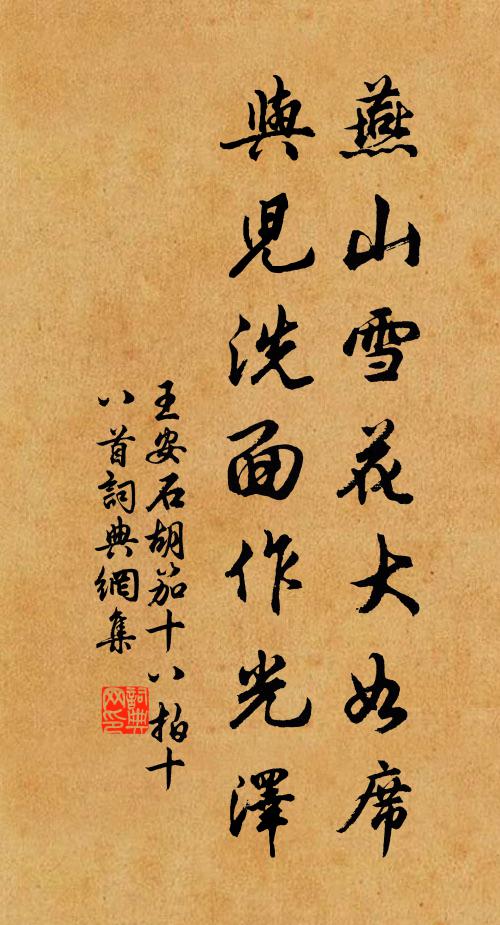 燕山雪花大如席
與兒洗面作光澤
王安石胡笳十八拍十
八首詞典網集
詞典網印